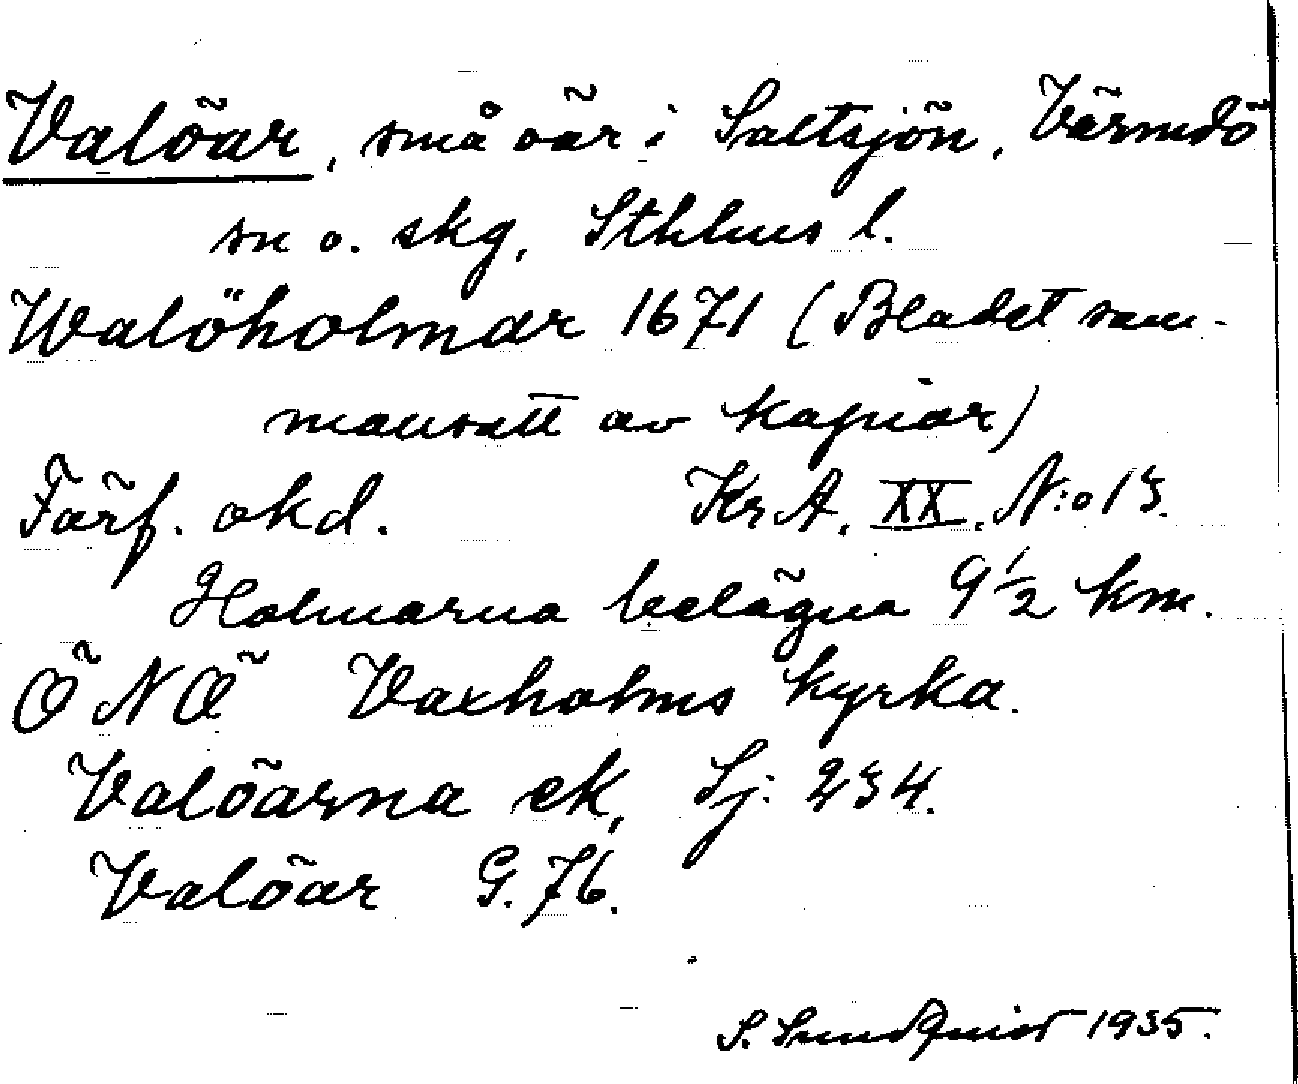 Valöar, små öar i Saltsjön, Värmdö
sn o. skg, Sthlms l.
Walöholmar 1671 (Bladet sam-
mansatt av kopior)
Förf. okd. KrA. XX. N:o 13.
Holmarna belägna 9 1/2 km.
ÖNÖ Vaxholms kyrka.
Valöarna ek, Sj: 234.
Valöar G. 76.
S. Sundquist 1935.